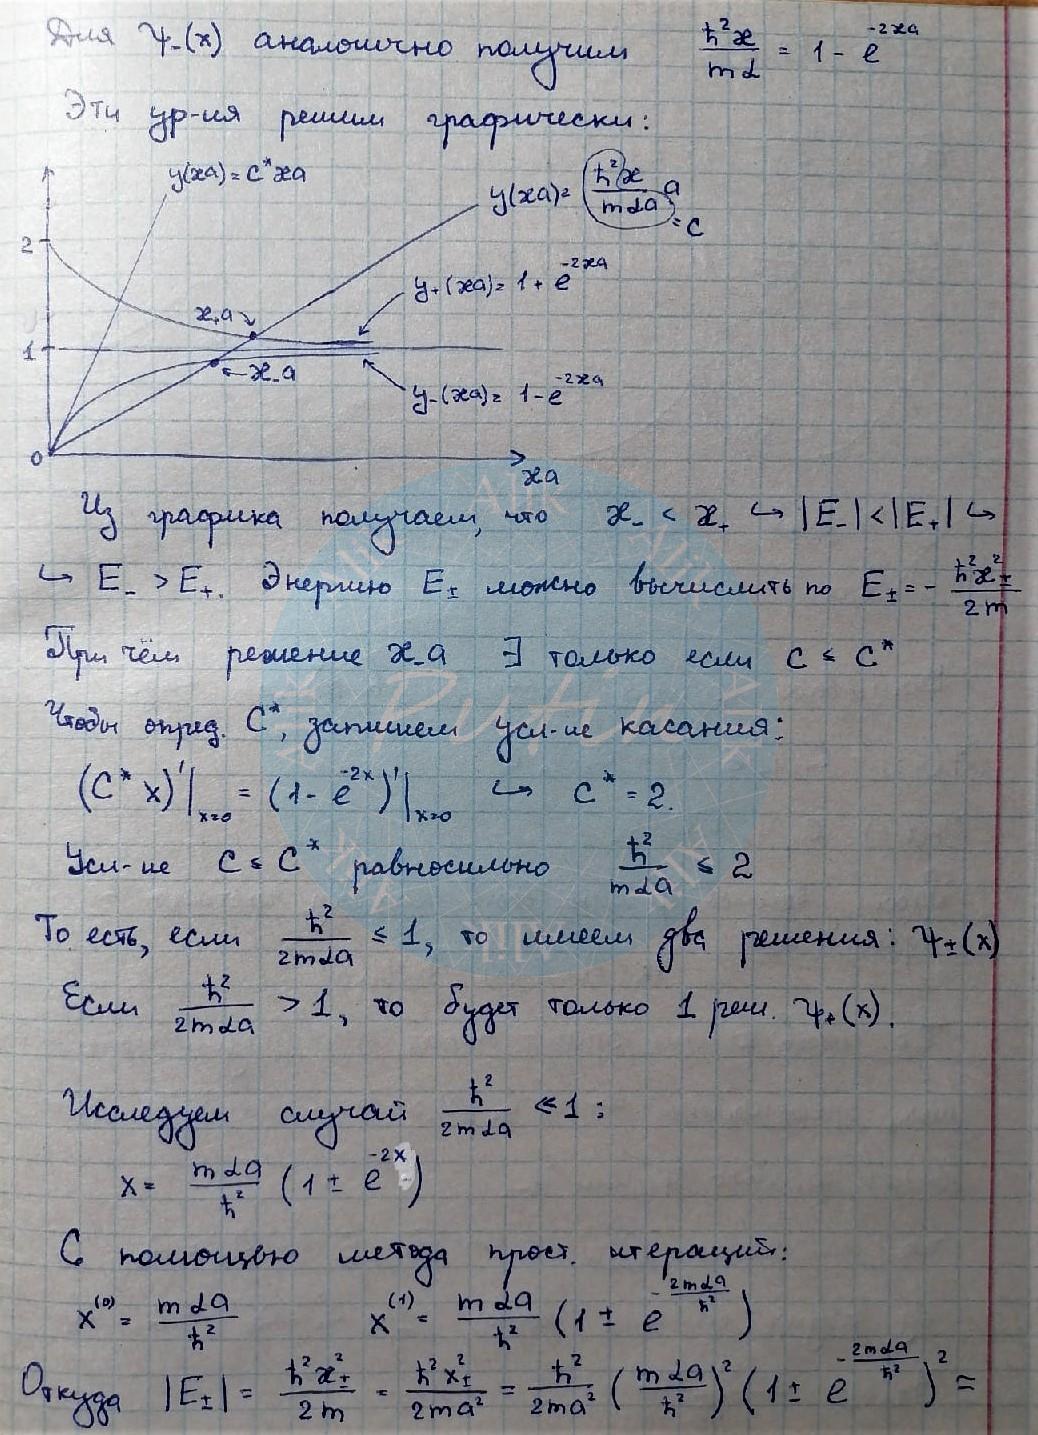 Для Ψ₋(x) аналогично получим ħ²ϰ/mα = 1 - e^(-2ϰa)
Эти ур-ия решим графически:
y(ϰa) = C*ϰa
y(ϰa) = ħ²ϰ/mαa a
= C
2
y₊(ϰa) = 1 + e^(-2ϰa)
ϰ₊a
1
ϰ₋a
y₋(ϰa) = 1 - e^(-2ϰa)
0
ϰa
Из графика получаем, что ϰ₋ < ϰ₊ ↪ |E₋| < |E₊| ↪
↪ E₋ > E₊. Энергию E± можно вычислить по E± = - ħ²ϰ±²/2m
При чём решение ϰ₋a ∃ только если C ≤ C*
Чтобы опред. C*, запишем усл-ие касания:
(C* x)'|ₓ₌₀ = (1 - e^(-2x))'|ₓ₌₀ ↪ C* = 2.
Усл-ие C ≤ C* равносильно ħ²/mαa ≤ 2
То есть, если ħ²/2mαa ≤ 1, то имеем два решения: Ψ±(x)
Если ħ²/2mαa > 1, то будет только 1 реш. Ψ₊(x).
Исследуем случай ħ²/2mαa ≪ 1:
x = mαa/ħ² (1 ± e^(-2x))
С помощью метода прост. итераций:
x⁽⁰⁾ = mαa/ħ² x⁽¹⁾ = mαa/ħ² (1 ± e^(-2mαa/ħ²))
Откуда |E±| = ħ²ϰ±²/2m = ħ²x±²/2ma² = ħ²/2ma² (mαa/ħ²)² (1 ± e^(-2mαa/ħ²))² ≈
Alik
Putin